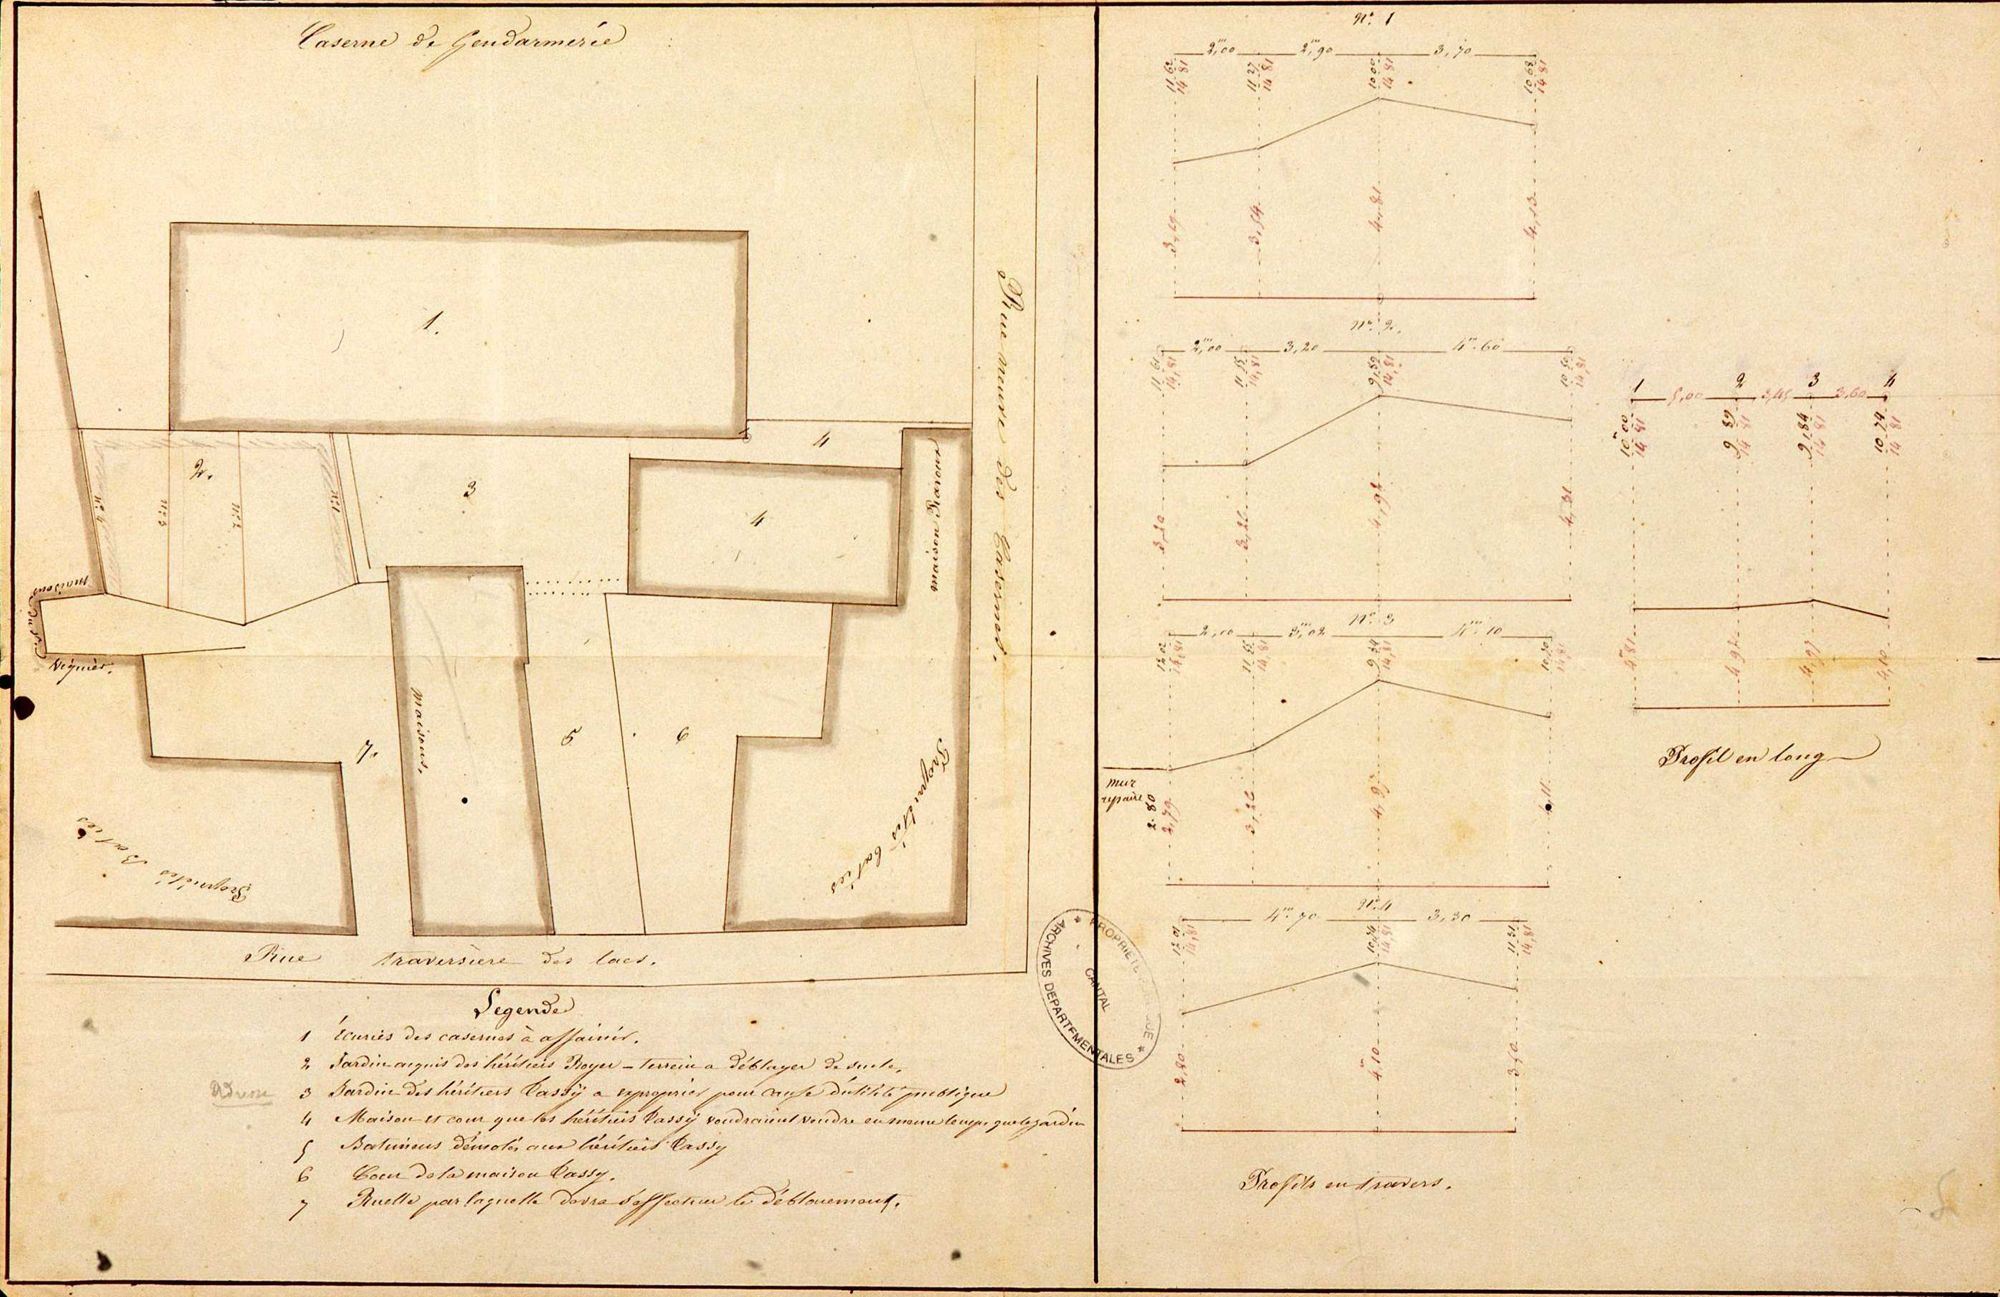 Caserne de Gendarmerie
1.
2.
3
4
4
5
6
7.
N° 4
N° 3
N° 2
N° 1
maison du Sr
Veynier.
maisons.
maison Raroux
Rue neuve des Casernes.
Propriétés baties
Propriétés Baties
Rue traversière des lacs.
Légende
1 Écuries des casernes à assainir.
2 Jardin acquis des héritiers Boyer – terrain a déblayer de suite.
3 Jardin des héritiers Cassÿ a exproprier pour cause d'utilité publique
4 Maison et cour que les héritiers Cassÿ voudraient vendre en meme temps que le jardin
5 Batiments démolis aux héritiers Cassy
6 Cour de la maison Cassy.
7 Ruelle par laquelle devra s'effectuer le déblaiement.
PROPRIÉTÉ PUBLIQUE
CANTAL
* ARCHIVES DEPARTEMENTALES *
N° 1
2,m00 2,m90 3,70
11 62 11 27 10 00 10 68
14 81 14 81 14 81 14 81
3,19 3,54 4,81 4,13
N° 2.
2,m00 3,20 4m.60
11 61 11 55 9,89 10 50
14,81 14,81 14,81 14,81
3,20 3,26 4,92 4,31
N° 3
2,00 3,m02 4m.10
12 02 11 55 9,84 10 70
14,81 14,81 14,81 14,81
mur
repaire
2.80
2,79 3,26 4,97 4,11
N° 4
4m.70 3,30
12 01 10,74 11 31
14,81 14,81 14,81
2,80 4m10 3,50
Profils en travers.
1 2 3 4
5,00 3,45 3,60
10m00 9 89 9,84 10,74
14 81 14 81 14 81 14 81
4m81 4,92 4,97 4,10
Profil en long